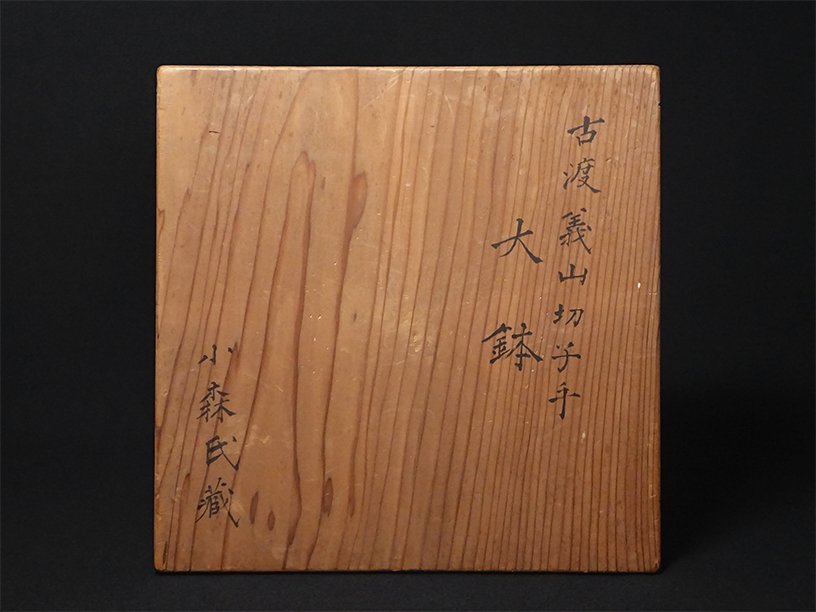 古渡義山切子手
大鉢
小森氏蔵